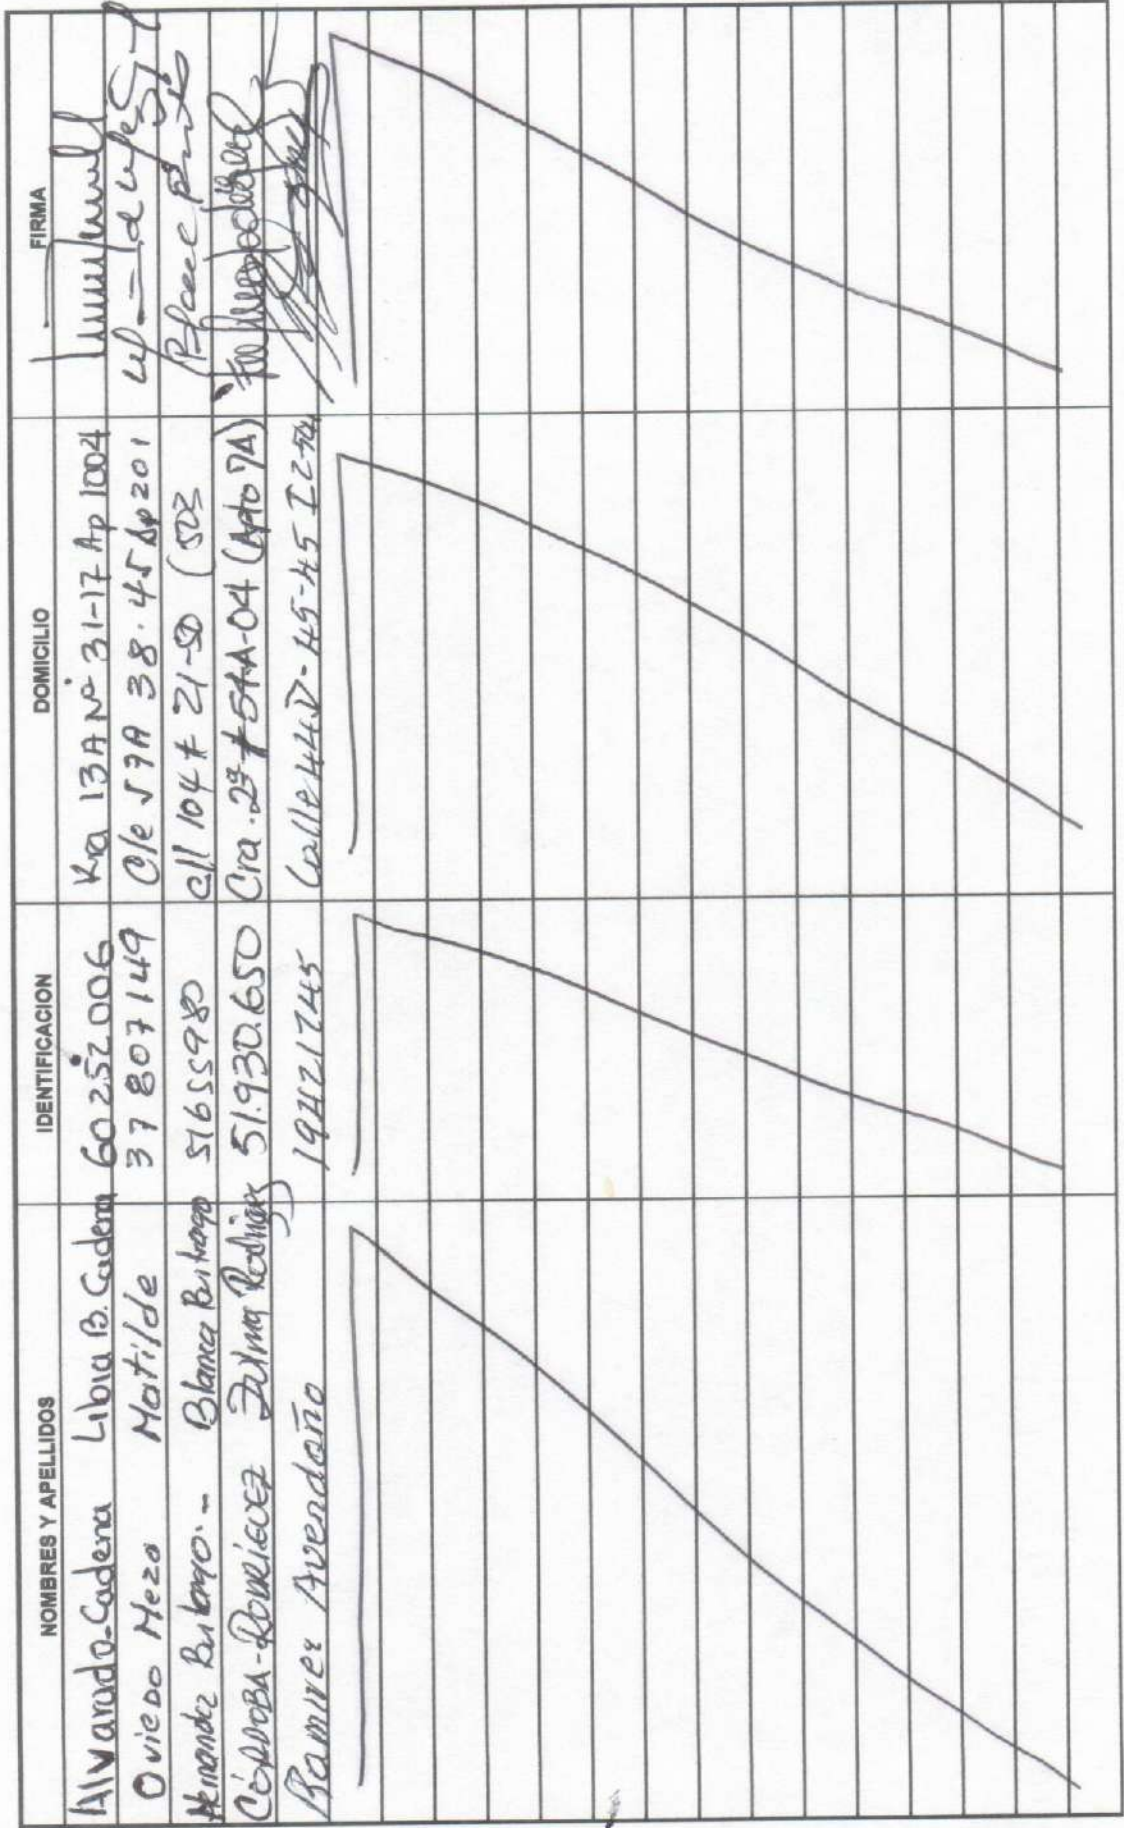 NOMBRES Y APELLIDOS IDENTIFICACION DOMICILIO FIRMA
Alvarado-Cadena Libia B. Cadena 60252006 Kra 13A Nº 31-17 Ap 1004
Oviedo Meza Matilde 37807149 Cle 57A 38-45 Ap 201
Hernandez Buitrago.- Blanca Buitrago 51655980 Cll 104 # 21-50 (503
CÓRDOBA-RODRÍGUEZ Zulma Rodríguez 51.930.650 Cra. 23 # 54A-04 (Apto 7A)
Ramirez Avendaño 19421745 Calle 44D-45-45 I2